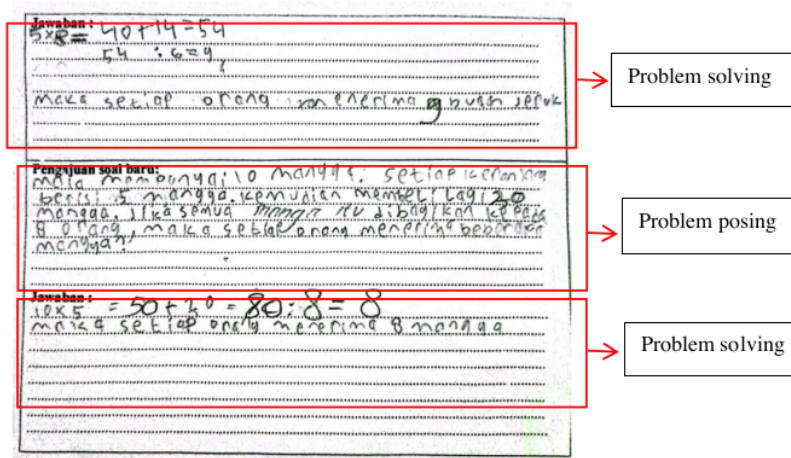 Jawaban :
5×8= 40+14=54
54 : 6=9
maka setiap orang menerima 9 buah jeruk
Problem solving
Pengajuan soal baru:
maia mempunyai 10 mangga. setiap keranjang
berisi 5 mangga. kemudian membeli lagi 20
mangga. Jika semua itu dibagikan kepada
8 orang, maka setiap orang menerima beberapa
mangga?
Problem posing
Jawaban :
10×5 = 50+30 = 80:8= 8
maka setiap orang menerima 8 mangga
Problem solving